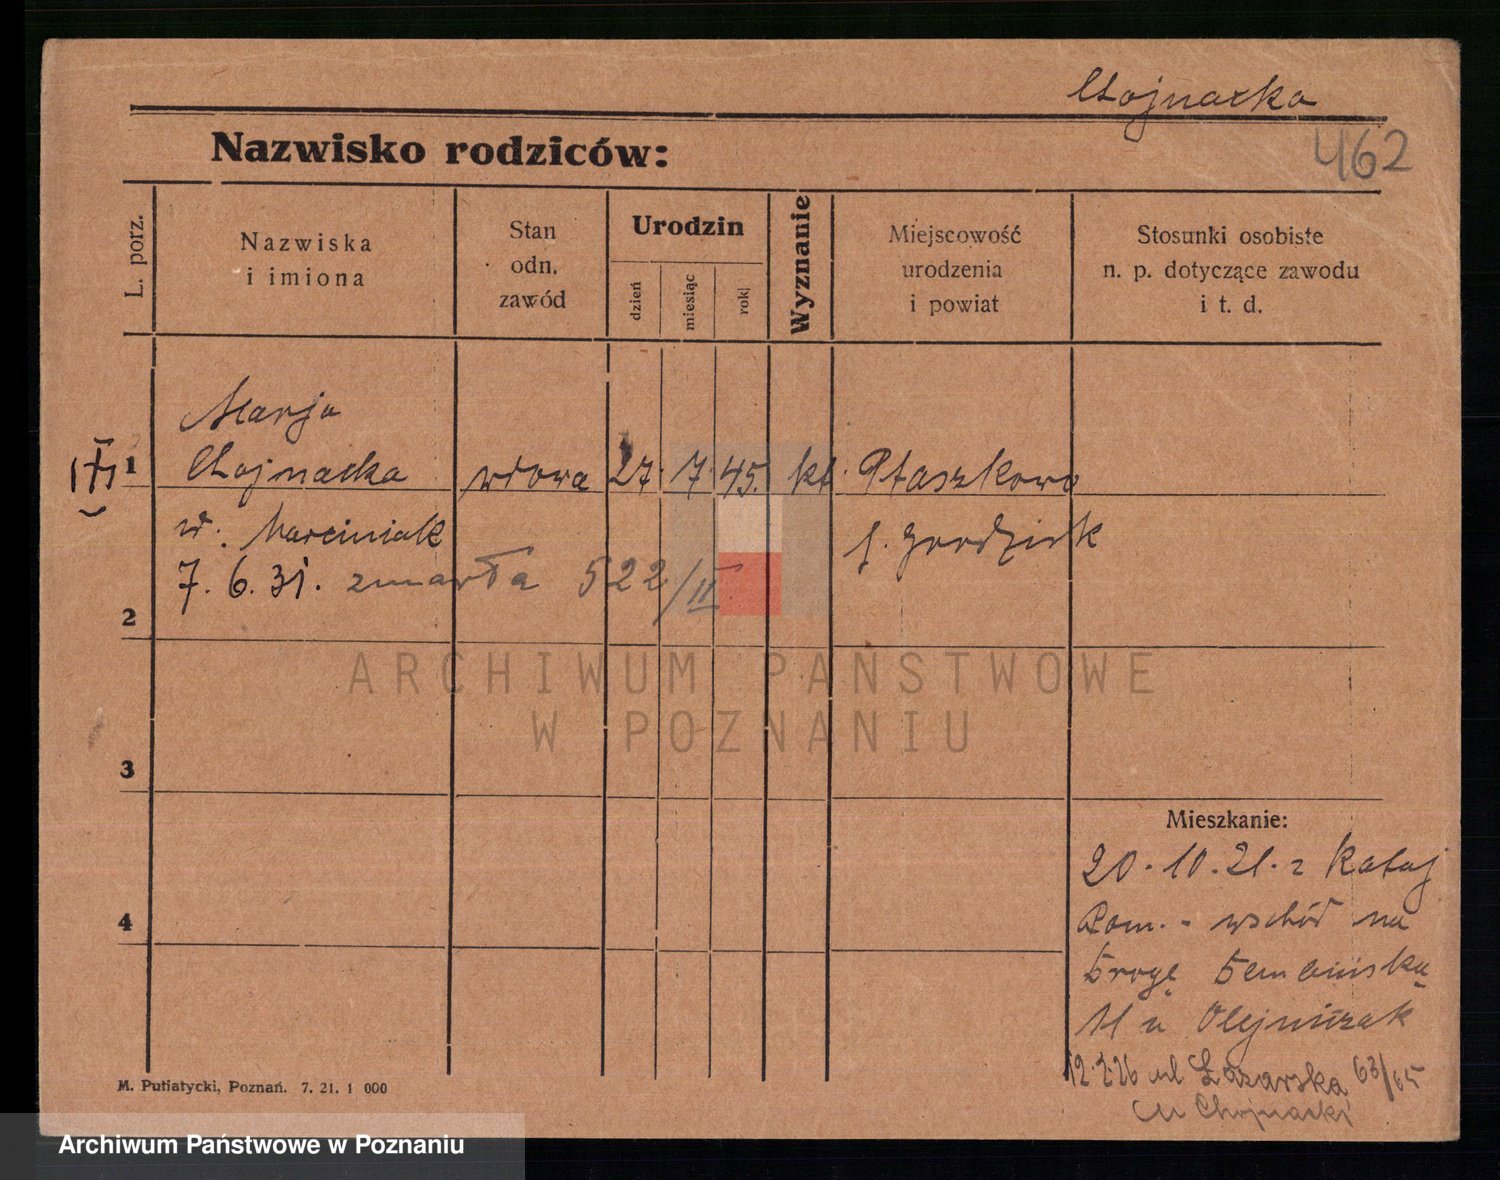 Chojnacka
Nazwisko rodziców:
462
L. porz.
Nazwiska
i imiona
Stan
odn.
zawód
Urodzin
dzień
miesiąc
rok
Wyznanie
Miejscowość
urodzenia
i powiat
Stosunki osobiste
n. p. dotyczące zawodu
i t. d.
Marja
1 Chojnacka wdowa 27. 7. 45. kt. Ptaszkowo
Marciniak
Grodzisk
7. 6. 31. zmarła 522/II
2
ARCHIWUM PAŃSTWOWE
W POZNANIU
3
Mieszkanie:
20. 10. 21. z Rataj
4
Pom. - wschód na
Drogę Dembińską
11 u Olejniczak
12.2.26 ul Łazarska 63/65
u Chojnacki
M. Putiatycki, Poznań. 7. 21. 1 000
Archiwum Państwowe w Poznaniu